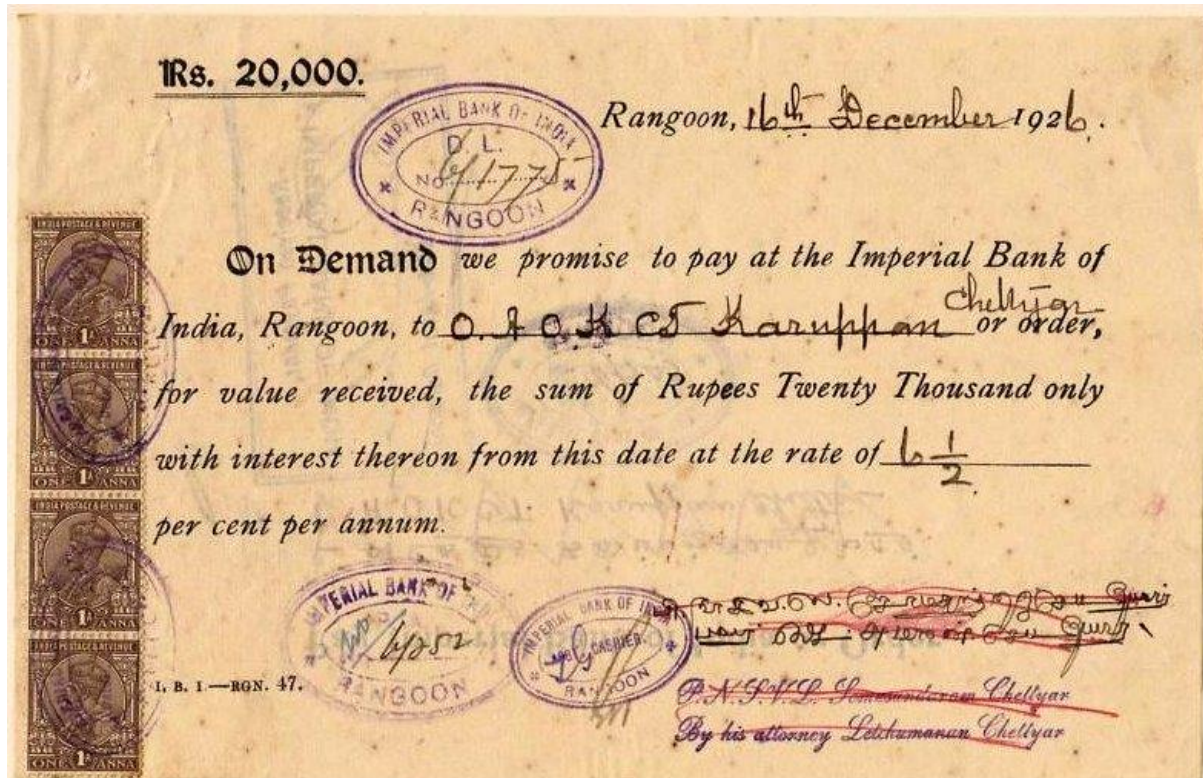 Rs. 20,000.
IMPERIAL BANK OF INDIA
D. L.
NO. 6/1775
RANGOON
Rangoon, 16th December 1926.
On Demand we promise to pay at the Imperial Bank of
Chettyar
India, Rangoon, to O. A. O. K. CT Karuppan or order,
for value received, the sum of Rupees Twenty Thousand only
with interest thereon from this date at the rate of 6 1/2
per cent per annum.
INDIA POSTAGE & REVENUE
1A
ONE ANNA
1A
ONE ANNA
INDIA POSTAGE & REVENUE
1A
ONE ANNA
1A
ONE ANNA
IMPERIAL BANK OF
RANGOON
IMPERIAL BANK OF INDIA
CASHIER
RANGOON
I. B. I.—RGN. 47.
P. N. S. V. L. Somasundaram Chettyar
By his attorney Letchumanan Chettyar